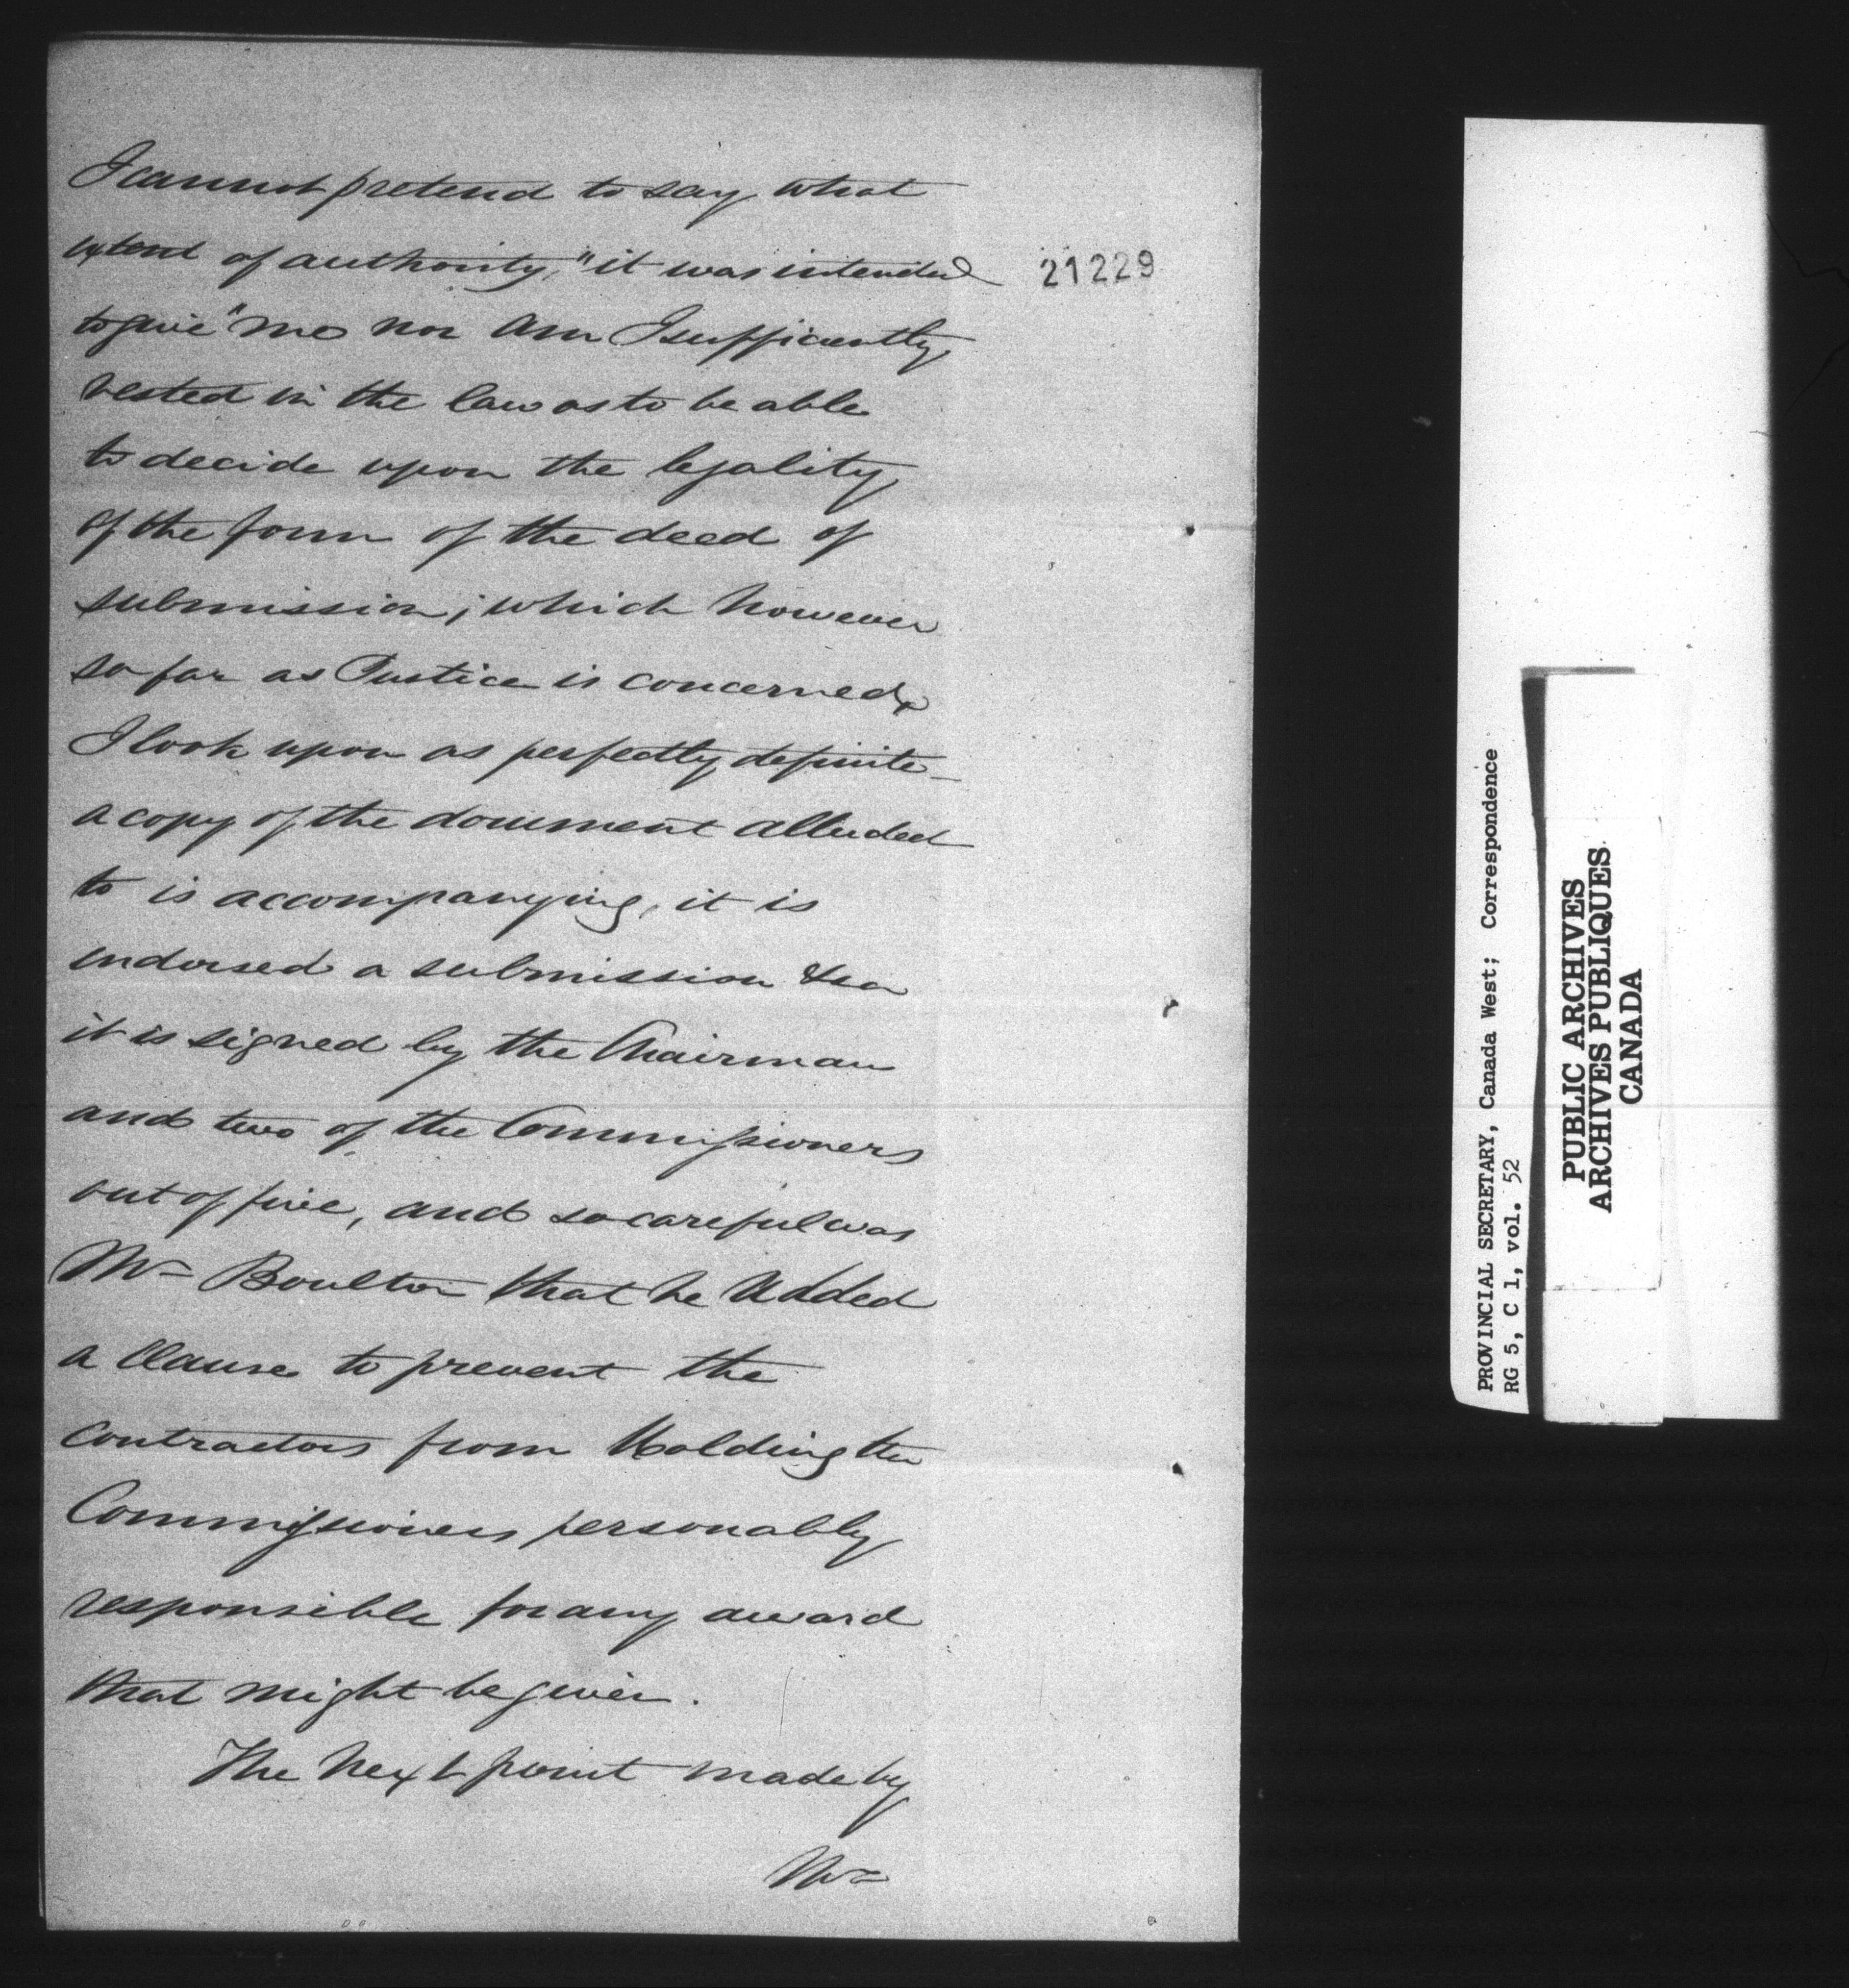 I cannot pretend to say what
extent of authority, "it was intended
21229
to give" me nor am I sufficiently
vested in the law as to be able
to decide upon the legality
of the form of the deed of
submission; which however
so far as Justice is concerned,
I look upon as perfectly definite_
a copy of the document alluded
to is accompanying, it is
endorsed a submission &ca
it is signed by the Chairman
and two of the Commissioners
out of five, and so careful was
Mr Boulton that he added
a clause to prevent the
contractors from Holding the
Commissioners personally
responsible for any award
that might be given.
The next point made by
Mr
PROVINCIAL SECRETARY, Canada West; Correspondence
RG 5, C 1, vol. 52
PUBLIC ARCHIVES
ARCHIVES PUBLIQUES
CANADA